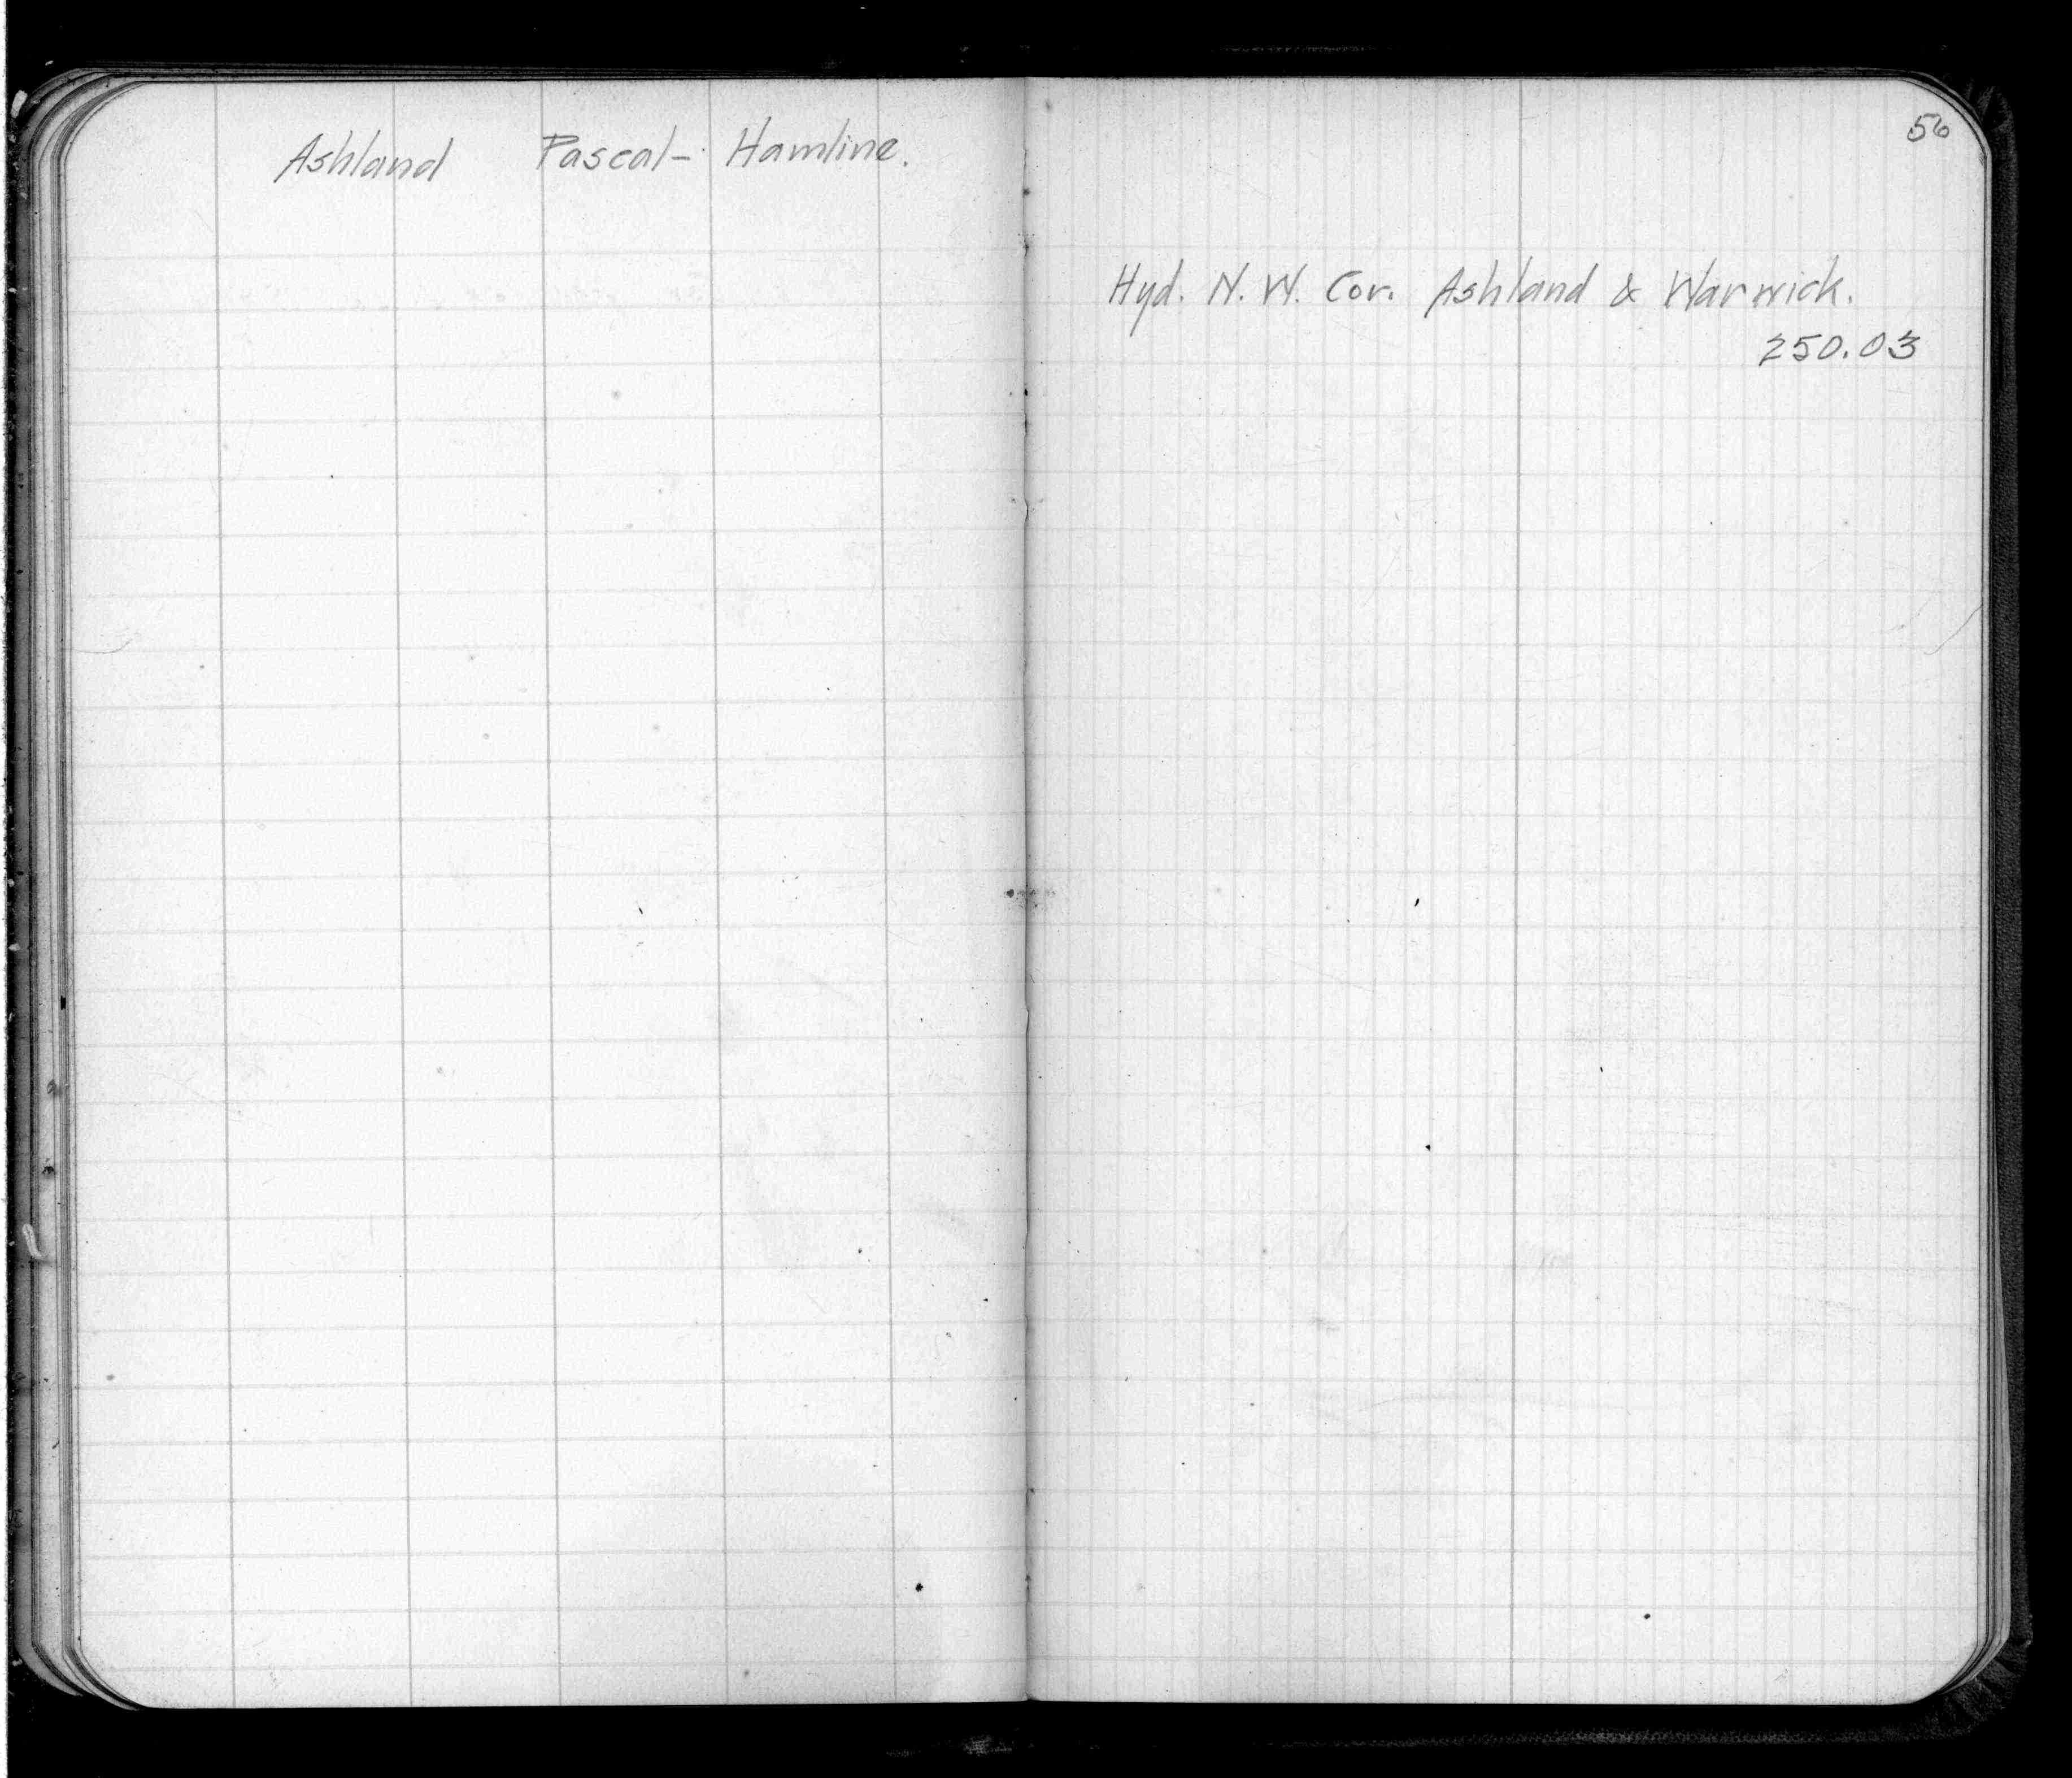 Ashland Pascal - Hamline.
56
Hyd. N. W. Cor. Ashland & Warwick.
250.03